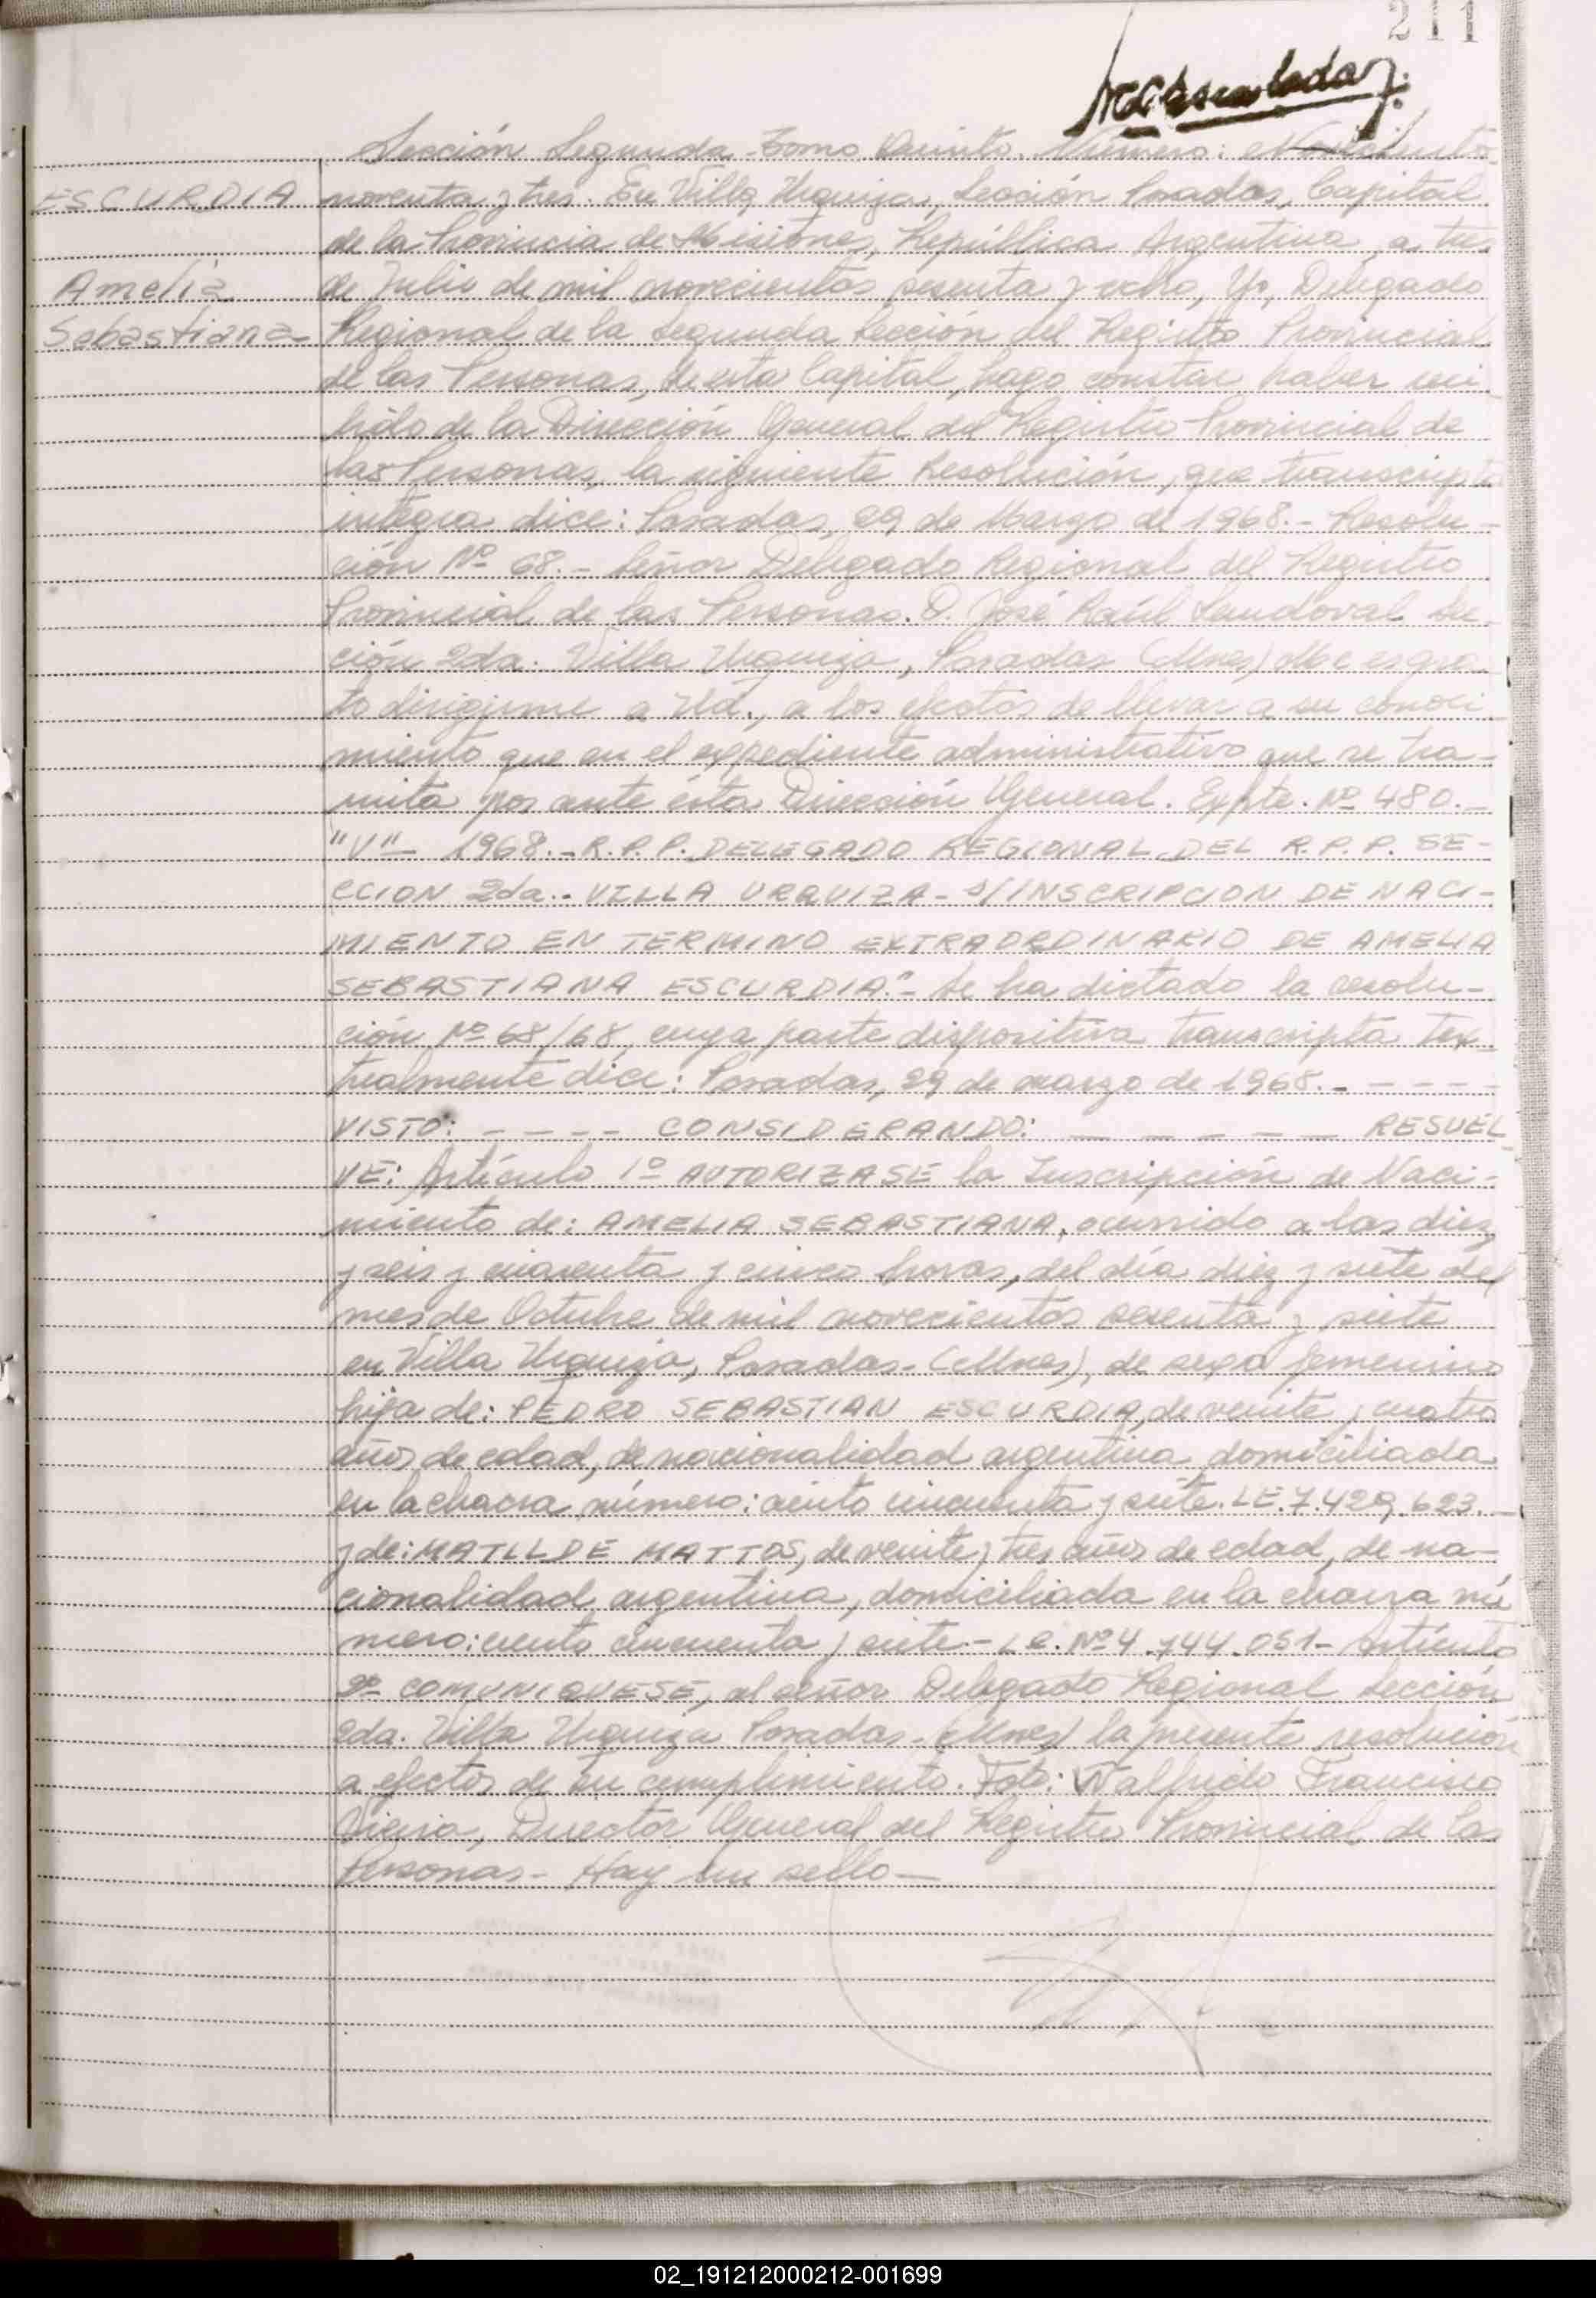 211
Sección Segunda - Tomo Quinto. Número:
ESCURDIA
noventa y tres. En Villa Urquiza, Sección Posadas, Capital
de la Provincia de Misiones, República Argentina, a tres
Amelia
de Julio de mil novecientos sesenta y ocho, Yo, Delegado
Sebastiana
Regional de la Segunda Sección del Registro Provincial
de las Personas, de esta Capital, hago constar haber reci
bido de la Dirección General del Registro Provincial de
las Personas, la siguiente Resolución, que transcripta
íntegra dice: Posadas, 29 de Marzo de 1968.- Resolu-
ción Nº 68.- Señor Delegado Regional del Registro
Provincial de las Personas. D. José Raúl Sandoval Sec-
ción 2da. Villa Urquiza, Posadas (Mnes) Me es gra-
to dirigirme a Ud., a los efectos de llevar a su conoci-
miento que en el expediente administrativo que se tra-
mita por ante ésta Dirección General. Expte. Nº 480.-
"V"- 1968.-R.P.P. DELEGADO REGIONAL DEL R.P.P. SE-
CCION 2da.- VILLA URQUIZA- S/INSCRIPCION DE NACI-
MIENTO EN TERMINO EXTRAORDINARIO DE AMELIA
SEBASTIANA ESCURDIA".- Se ha dictado la resolu-
ción Nº 68/68, cuya parte dispositiva transcripta tex-
tualmente dice: Posadas, 29 de marzo de 1968.- - - - -
VISTO: - - - - CONSIDERANDO: - - - - - - RESUEL
VE: Artículo 1º AUTORIZASE la Inscripción de Naci-
miento de: AMELIA SEBASTIANA, ocurrido a las diez
y seis y cuarenta y cinco horas, del día diez y siete del
mes de Octubre de mil novecientos sesenta y siete
en Villa Urquiza, Posadas- (Mnes), de sexo femenino
hija de: PEDRO SEBASTIAN ESCURDIA, de veinte y cuatro
años de edad, de nacionalidad argentina domiciliada
en la chacra número: ciento cincuenta y siete. LE. 7.429.623.-
y de: MATILDE MATTOS, de veinte y tres años de edad, de na-
cionalidad argentina, domiciliada en la chacra nú
mero: ciento cincuenta y siete.- L.C. Nº 4.744.051- Artículo
2º COMUNIQUESE, al señor Delegado Regional Sección
2da. Villa Urquiza Posadas- (Mnes) la presente resolución
a efectos de su cumplimiento. Fdo: Walfrido Francisco
Vieira, Director General del Registro Provincial de las
Personas- Hay un sello-
02_191212000212-001699